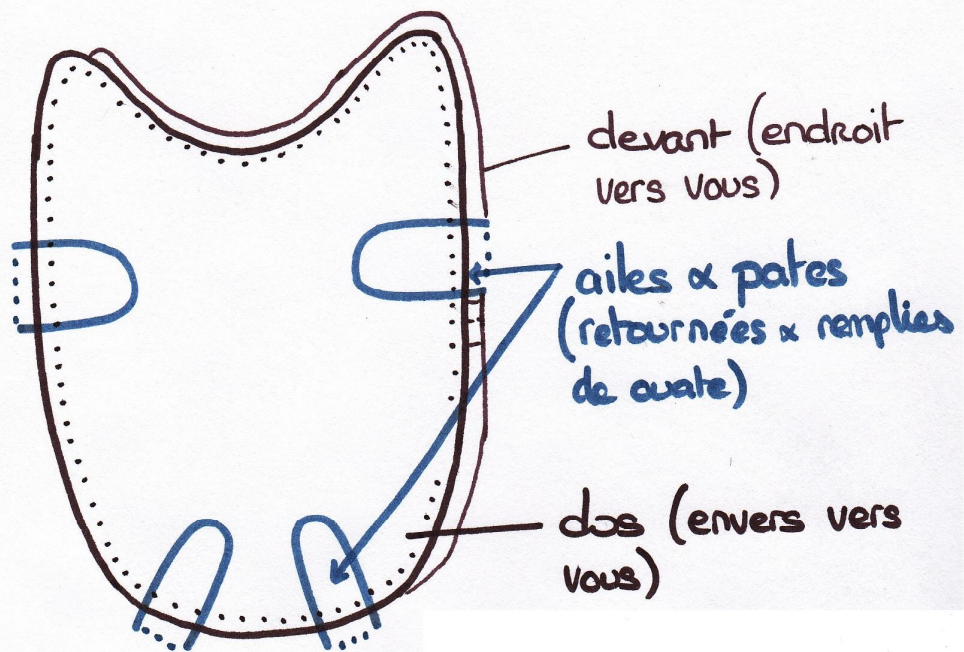 devant (endroit
vers vous)
ailes & pates
(retournées & remplies
de ouate)
dos (envers vers
vous)